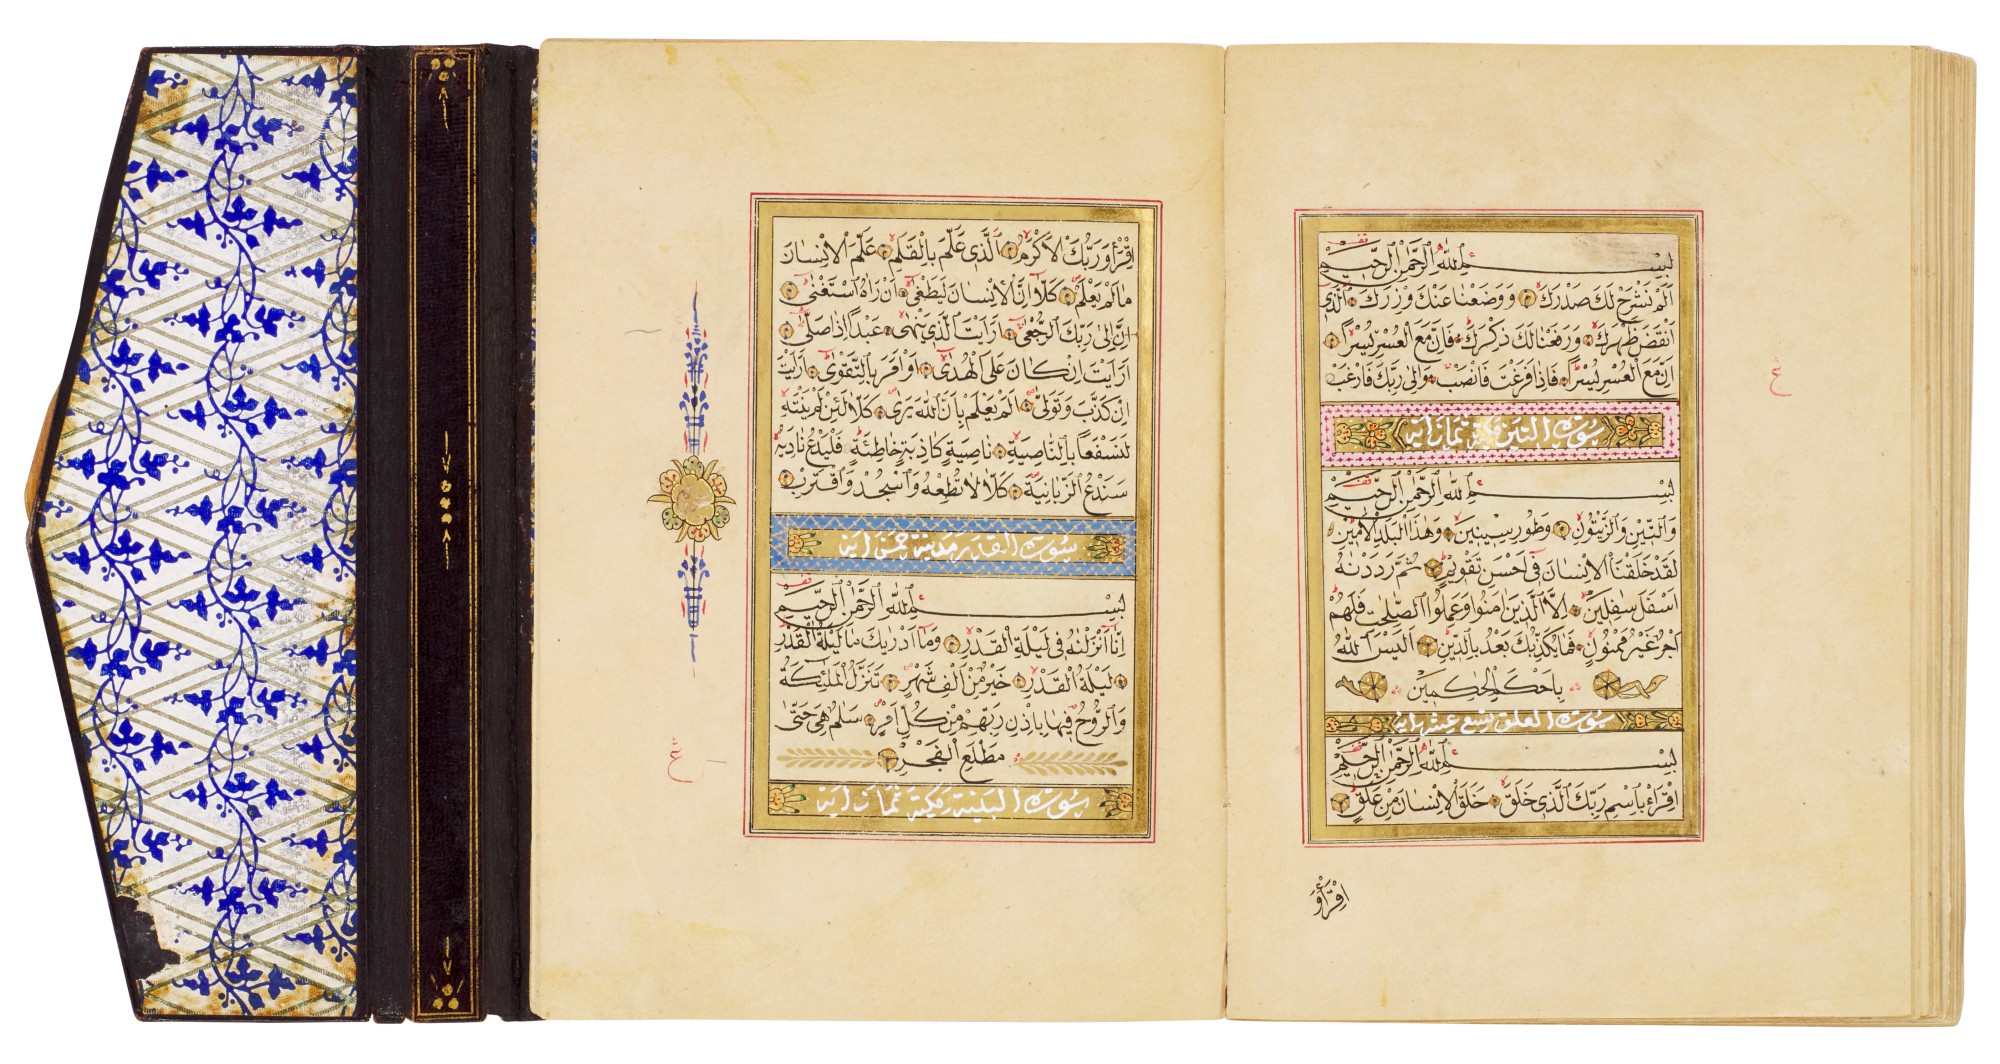 بِسْمِ اللّٰهِ الرَّحْمٰنِ الرَّحِيمِ
اَلَمْ نَشْرَحْ لَكَ صَدْرَكَ وَوَضَعْنَا عَنْكَ وِزْرَكَ اَلَّذِى
اَنْقَضَ ظَهْرَكَ وَرَفَعْنَا لَكَ ذِكْرَكَ فَاِنَّ مَعَ الْعُسْرِ يُسْرًا
اِنَّ مَعَ الْعُسْرِ يُسْرًا فَاِذَا فَرَغْتَ فَانْصَبْ وَاِلٰى رَبِّكَ فَارْغَبْ
سورة التين مكية ثمان اية
بِسْمِ اللّٰهِ الرَّحْمٰنِ الرَّحِيمِ
وَالتِّينِ وَالزَّيْتُونِ وَطُورِ سِينِينَ وَهٰذَا الْبَلَدِ الْاَمِينِ
لَقَدْ خَلَقْنَا الْاِنْسَانَ فِى اَحْسَنِ تَقْوِيمٍ ثُمَّ رَدَدْنٰهُ
اَسْفَلَ سٰفِلِينَ اِلَّا الَّذِينَ اٰمَنُوا وَعَمِلُوا الصّٰلِحٰتِ فَلَهُمْ
اَجْرٌ غَيْرُ مَمْنُونٍ فَمَا يُكَذِّبُكَ بَعْدُ بِالدِّينِ اَلَيْسَ اللّٰهُ
بِاَحْكَمِ الْحٰكِمِينَ
سورة العلق تسع عشر اية
بِسْمِ اللّٰهِ الرَّحْمٰنِ الرَّحِيمِ
اِقْرَاْ بِاسْمِ رَبِّكَ الَّذِى خَلَقَ خَلَقَ الْاِنْسَانَ مِنْ عَلَقٍ
اِقْرَاْ وَ
ع
اِقْرَاْ وَرَبُّكَ الْاَكْرَمُ اَلَّذِى عَلَّمَ بِالْقَلَمِ عَلَّمَ الْاِنْسَانَ
مَا لَمْ يَعْلَمْ كَلَّا اِنَّ الْاِنْسَانَ لَيَطْغٰى اَنْ رَاٰهُ اسْتَغْنٰى
اِنَّ اِلٰى رَبِّكَ الرُّجْعٰى اَرَاَيْتَ الَّذِى يَنْهٰى عَبْدًا اِذَا صَلّٰى
اَرَاَيْتَ اِنْ كَانَ عَلَى الْهُدٰى اَوْ اَمَرَ بِالتَّقْوٰى اَرَاَيْتَ
اِنْ كَذَّبَ وَتَوَلّٰى اَلَمْ يَعْلَمْ بِاَنَّ اللّٰهَ يَرٰى كَلَّا لَئِنْ لَمْ يَنْتَهِ
لَنَسْفَعًا بِالنَّاصِيَةِ نَاصِيَةٍ كَاذِبَةٍ خَاطِئَةٍ فَلْيَدْعُ نَادِيَهُ
سَنَدْعُ الزَّبَانِيَةَ كَلَّا لَا تُطِعْهُ وَاسْجُدْ وَاقْتَرِبْ
سورة القدر مدينة خمس اية
بِسْمِ اللّٰهِ الرَّحْمٰنِ الرَّحِيمِ
اِنَّا اَنْزَلْنٰهُ فِى لَيْلَةِ الْقَدْرِ وَمَا اَدْرٰيكَ مَا لَيْلَةُ الْقَدْرِ
لَيْلَةُ الْقَدْرِ خَيْرٌ مِنْ اَلْفِ شَهْرٍ تَنَزَّلُ الْمَلٰئِكَةُ
وَالرُّوحُ فِيهَا بِاِذْنِ رَبِّهِمْ مِنْ كُلِّ اَمْرٍ سَلٰمٌ هِىَ حَتّٰى
مَطْلَعِ الْفَجْرِ
سورة البينة مكية ثمان اية
ع